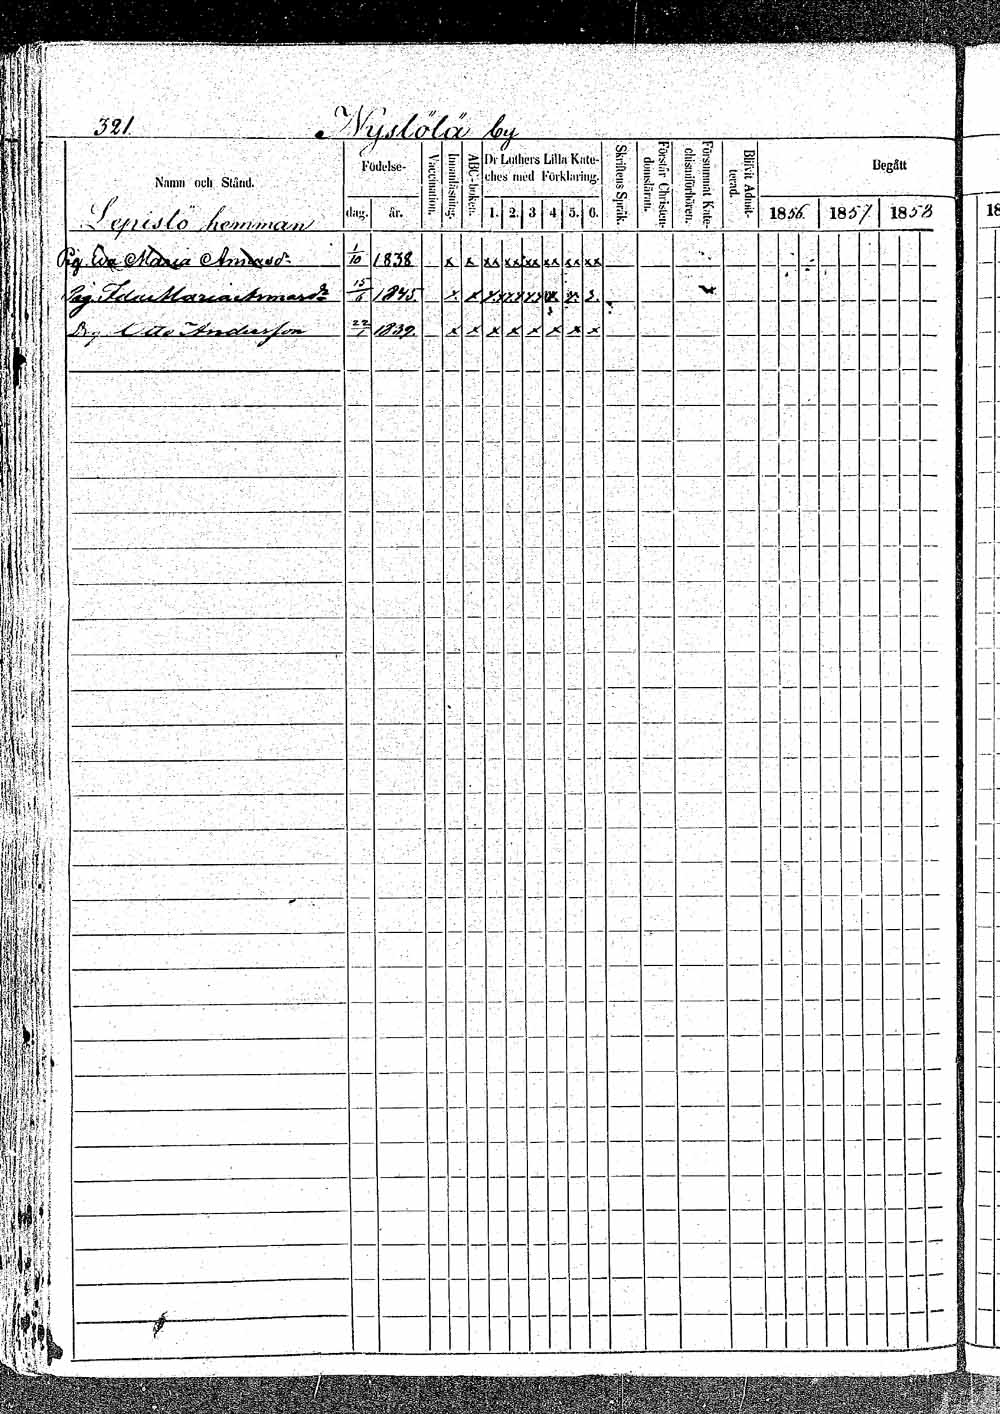 321. Nystölä by
Namn och Stånd. Födelse- Vaccination. Innanläsning. ABC-boken. Dr Luthers Lilla Kateches med Förklaring. Skriftens Språk. Förstår Christendomsläran. Försummat Katechismiförhören. Blifvit Admitterad. Begått
dag. år. 1. 2. 3 4. 5. 6. 1856. 1857 1858 18
Lepistö hemman
Pig. Eva Maria Annasdr 1/10 1838 x x xx xx xx xx xx xx
Pig. Ida Maria 15/6 1845.
Drg Otto Andersson 22/1 1839. x x x x x x x x